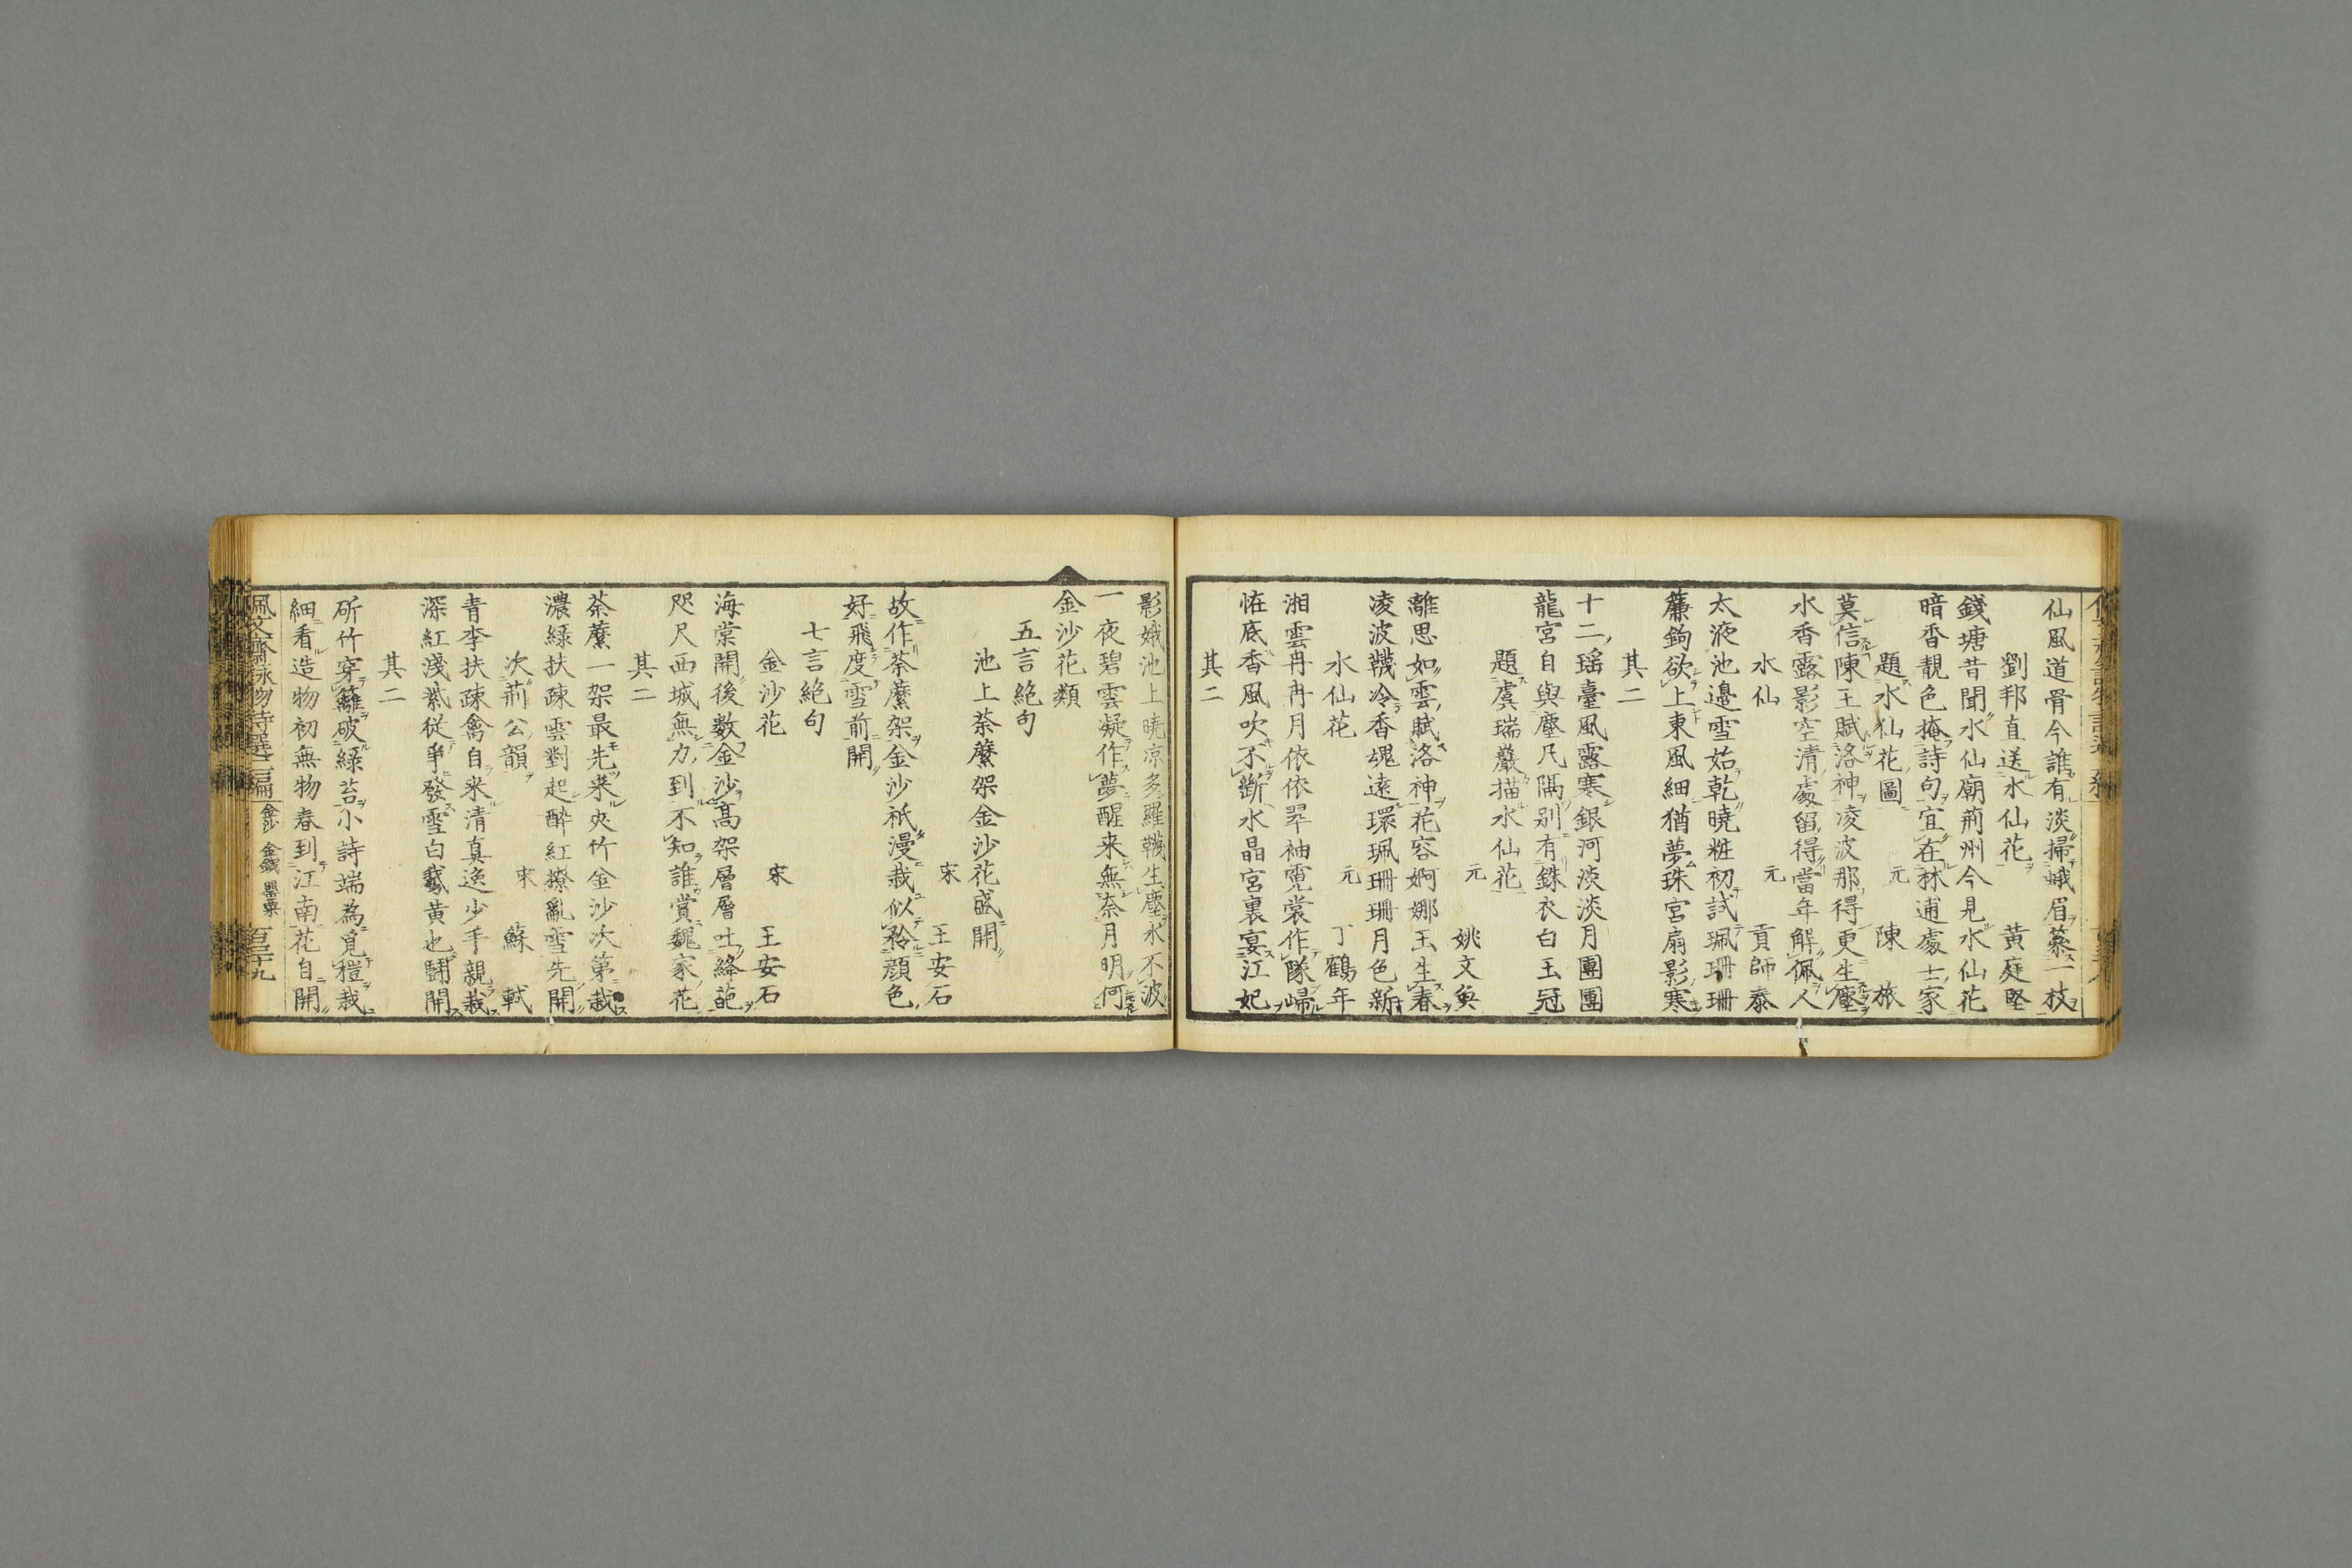 仙風道骨今誰有淡掃蛾眉簪一枝
劉邦直送水仙花 黃庭堅
錢塘昔聞水仙廟荊州今見水仙花
暗香靚色掩詩句宜在林逋處士家
題水仙花圖 元 陳旅
莫信陳王賦洛神凌波那得更生塵
水香露影空清處留得當年解佩人
水仙 元 貢師泰
太液池邊雪姑乾曉粧初試珮珊珊
簾鉤欲上東風細猶夢珠宮扇影寒
其二
十二瑶臺風露寒銀河淡淡月團團
龍宮自與塵凡隔別有銖衣白玉冠
題虞瑞巖描水仙花
元 姚文奐
離思如雲賦洛神花容婀娜玉生春
凌波韈冷香魂遠環珮珊珊月色新
水仙花 元 丁鶴年
湘雲冉冉月依依翠袖霓裳作隊歸
怪底香風吹不斷水晶宮裏宴江妃
其二
影娥池上曉凉多羅韈生塵水不波
一夜碧雲凝作夢醒来無奈月明何
金沙花類
五言絕句
池上荼蘼架金沙花盛開
宋 王安石
故作荼蘼架金沙祇漫栽似矜顔色
好飛度雪前開
七言絕句
金沙花 宋 王安石
海棠開後数金沙高架層層吐絳葩
咫尺西城無力到不知誰賞魏家花
其二
荼蘼一架最先来夾竹金沙次第栽
濃緑扶疎雲對起醉紅撩亂雪先開
次荊公韻 宋 蘇軾
青李扶疎禽自来清真逸少手親栽
深紅淺紫従爭發雪白鵞黄也鬪開
其二
斫竹穿籬破緑苔小詩端為覓榿栽
細看造物初無物春到江南花自開
佩文齋詠物詩選二編 金沙 金錢 罌粟 百三十九